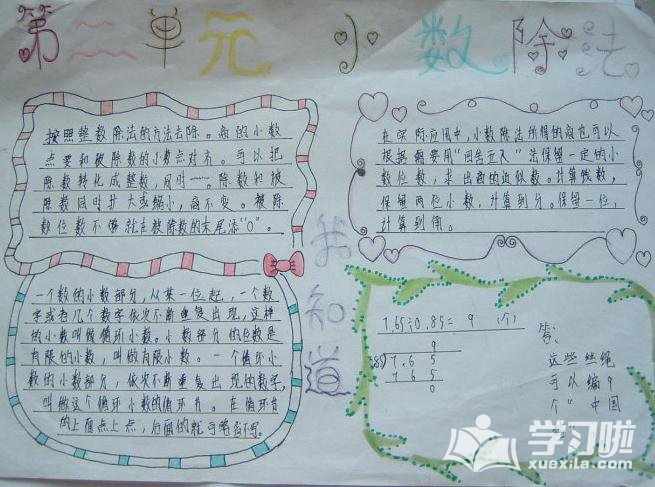 第二单元 小数除法
按照整数除法的方法去除。商的小数
点要和被除数的小数点对齐。可以把
除数转化成整数，同时……。除数和被
除数同时扩大或缩小，商不变。被除
数位数不够就在被除数的末尾添“0”。
在实际应用中，小数除法所得的商也可以
根据需要用“四舍五入”法保留一定的小
数位数，求出商的近似数。计算钱数，
保留两位小数，计算到分。保留一位，
计算到角。
我知道
一个数的小数部分，从某一位起，一个数
字或者几个数字依次不断重复出现，这样
的小数叫做循环小数。小数部分的位数是
有限的小数，叫做有限小数。一个循环小
数的小数部分，依次不断重复出现的数字，
叫做这个循环小数的循环节。在循环节
的上面点上点，后面的就可省略不写。
7.65÷0.85= 9 （个）
9
7.6 5
7 6 5
0
答：
这些丝绳
可以编9
个“中国
学习啦
xuexila.com